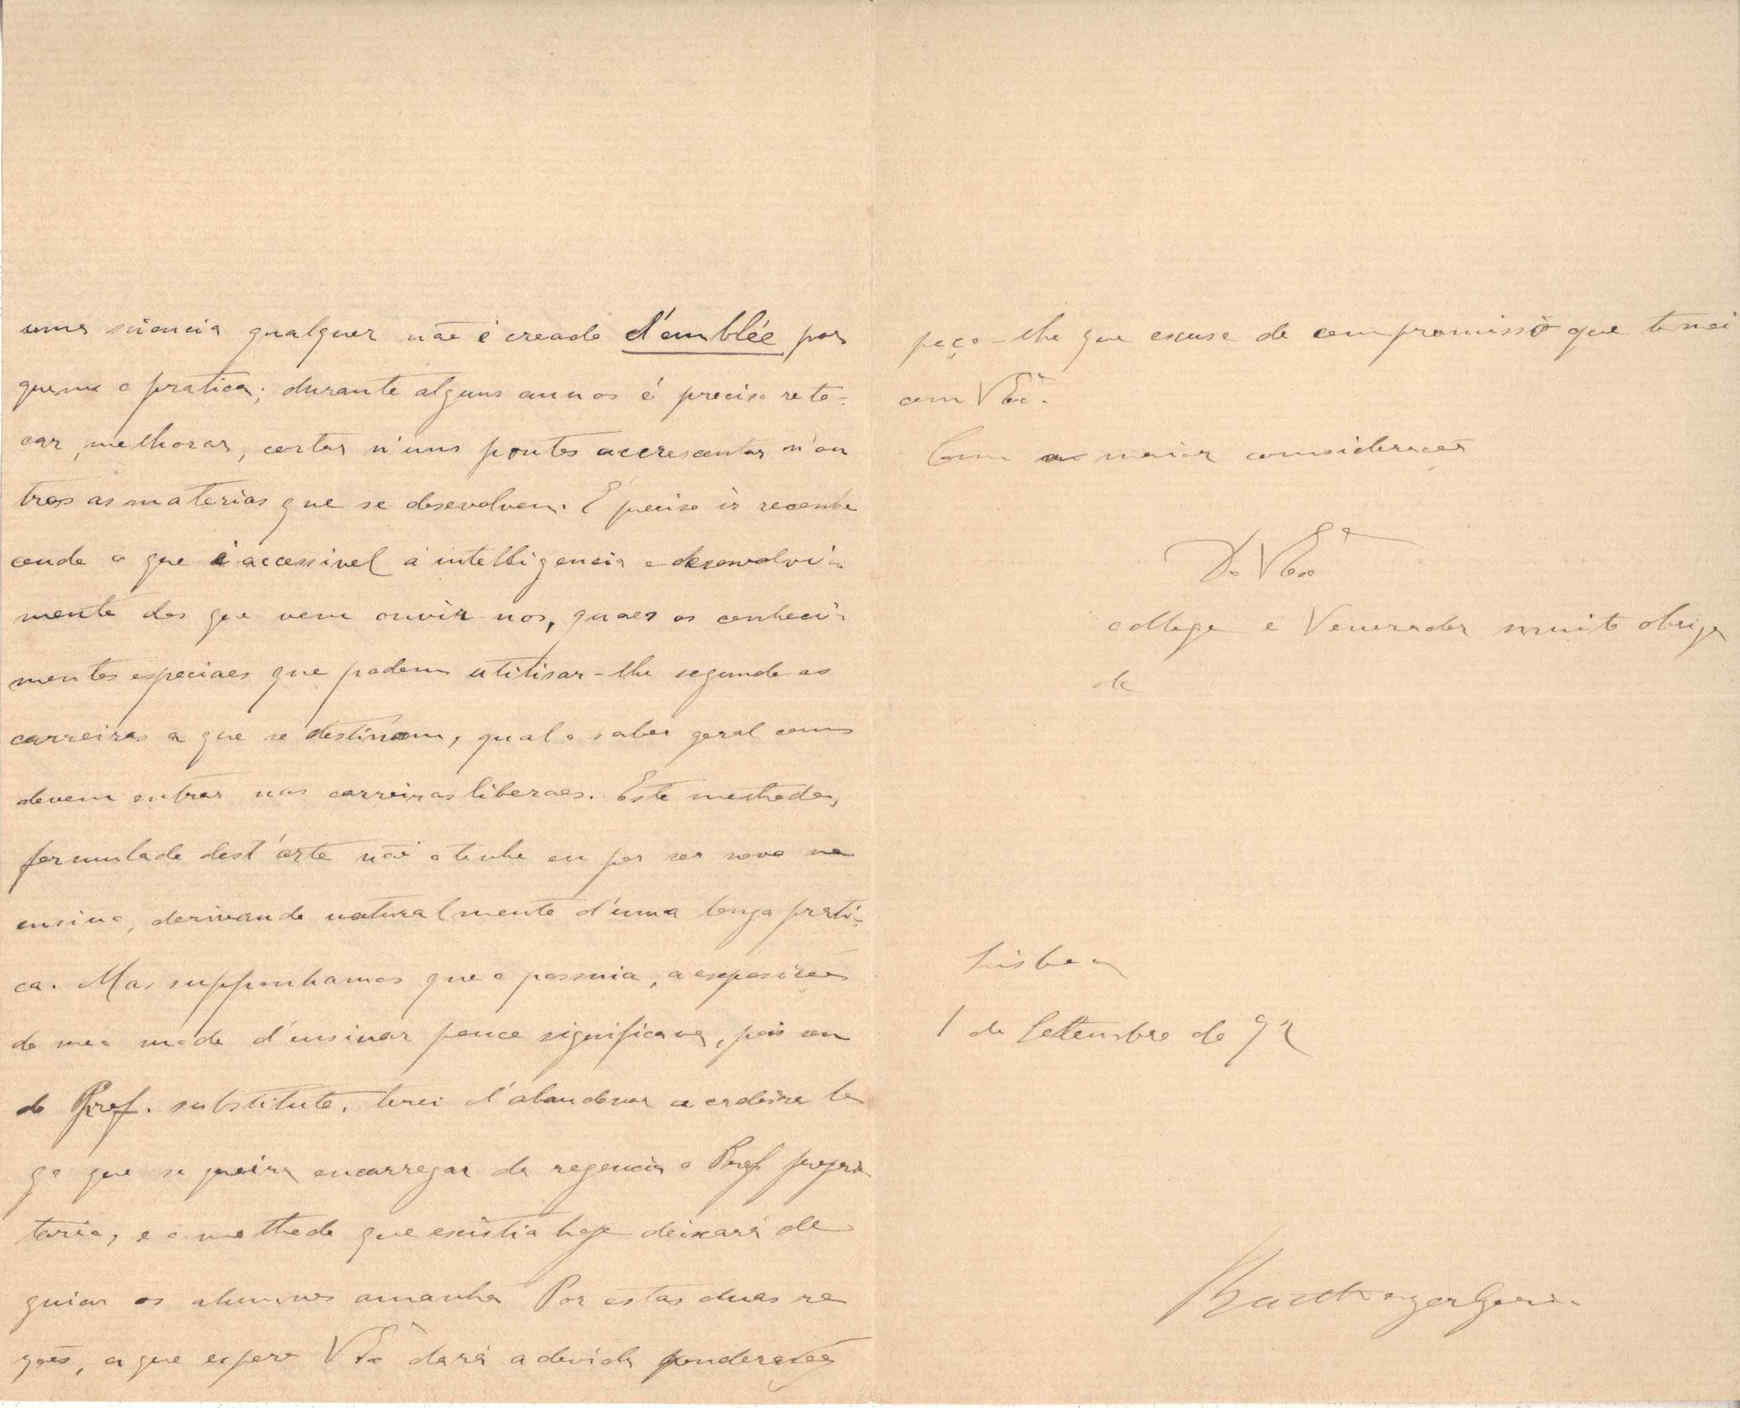 uma sciencia qualquer não é creada d'emblée por
quem a pratica; durante alguns annos é preciso reto-
car, melhorar, cortar n'uns pontos accrescentar n'ou
tros as materias que se desevolvem. É preciso ir reconhe
cendo o que é accessivel á intelligencia e desenvolvi-
mento dos que vem ouvir nos, quaes os conheci-
mentos especiaes que podem utilisar-lhe segundo as
carreiras a que se destinam, qual o saber geral com
devem entrar nas carreiras liberaes. Este methodo,
formulado dest'arte não o tenho eu por ser novo no
ensino, derivando naturalmente d'uma longa prati-
ca. Mas supponhamos que o possuia, a exposição
do meu modo d'ensinar pouco significava, pois sen
do Prof. substituto, terei d'abandonar a cadeira lo
go que se queira encarregar da regencia o Prof. proprie
tario, e o methodo que existia hoje deixará de
guiar os alumnos amanhã Por estas duas ra
zões, a que espero V Exa dará a devida ponderação
peço-lhe que escuse do compromisso que tomei
com V Exa.
Com a maior consideração
De V Exa
collega e Venerador muito obriga
do
Lisboa
1 de Setembro de 92